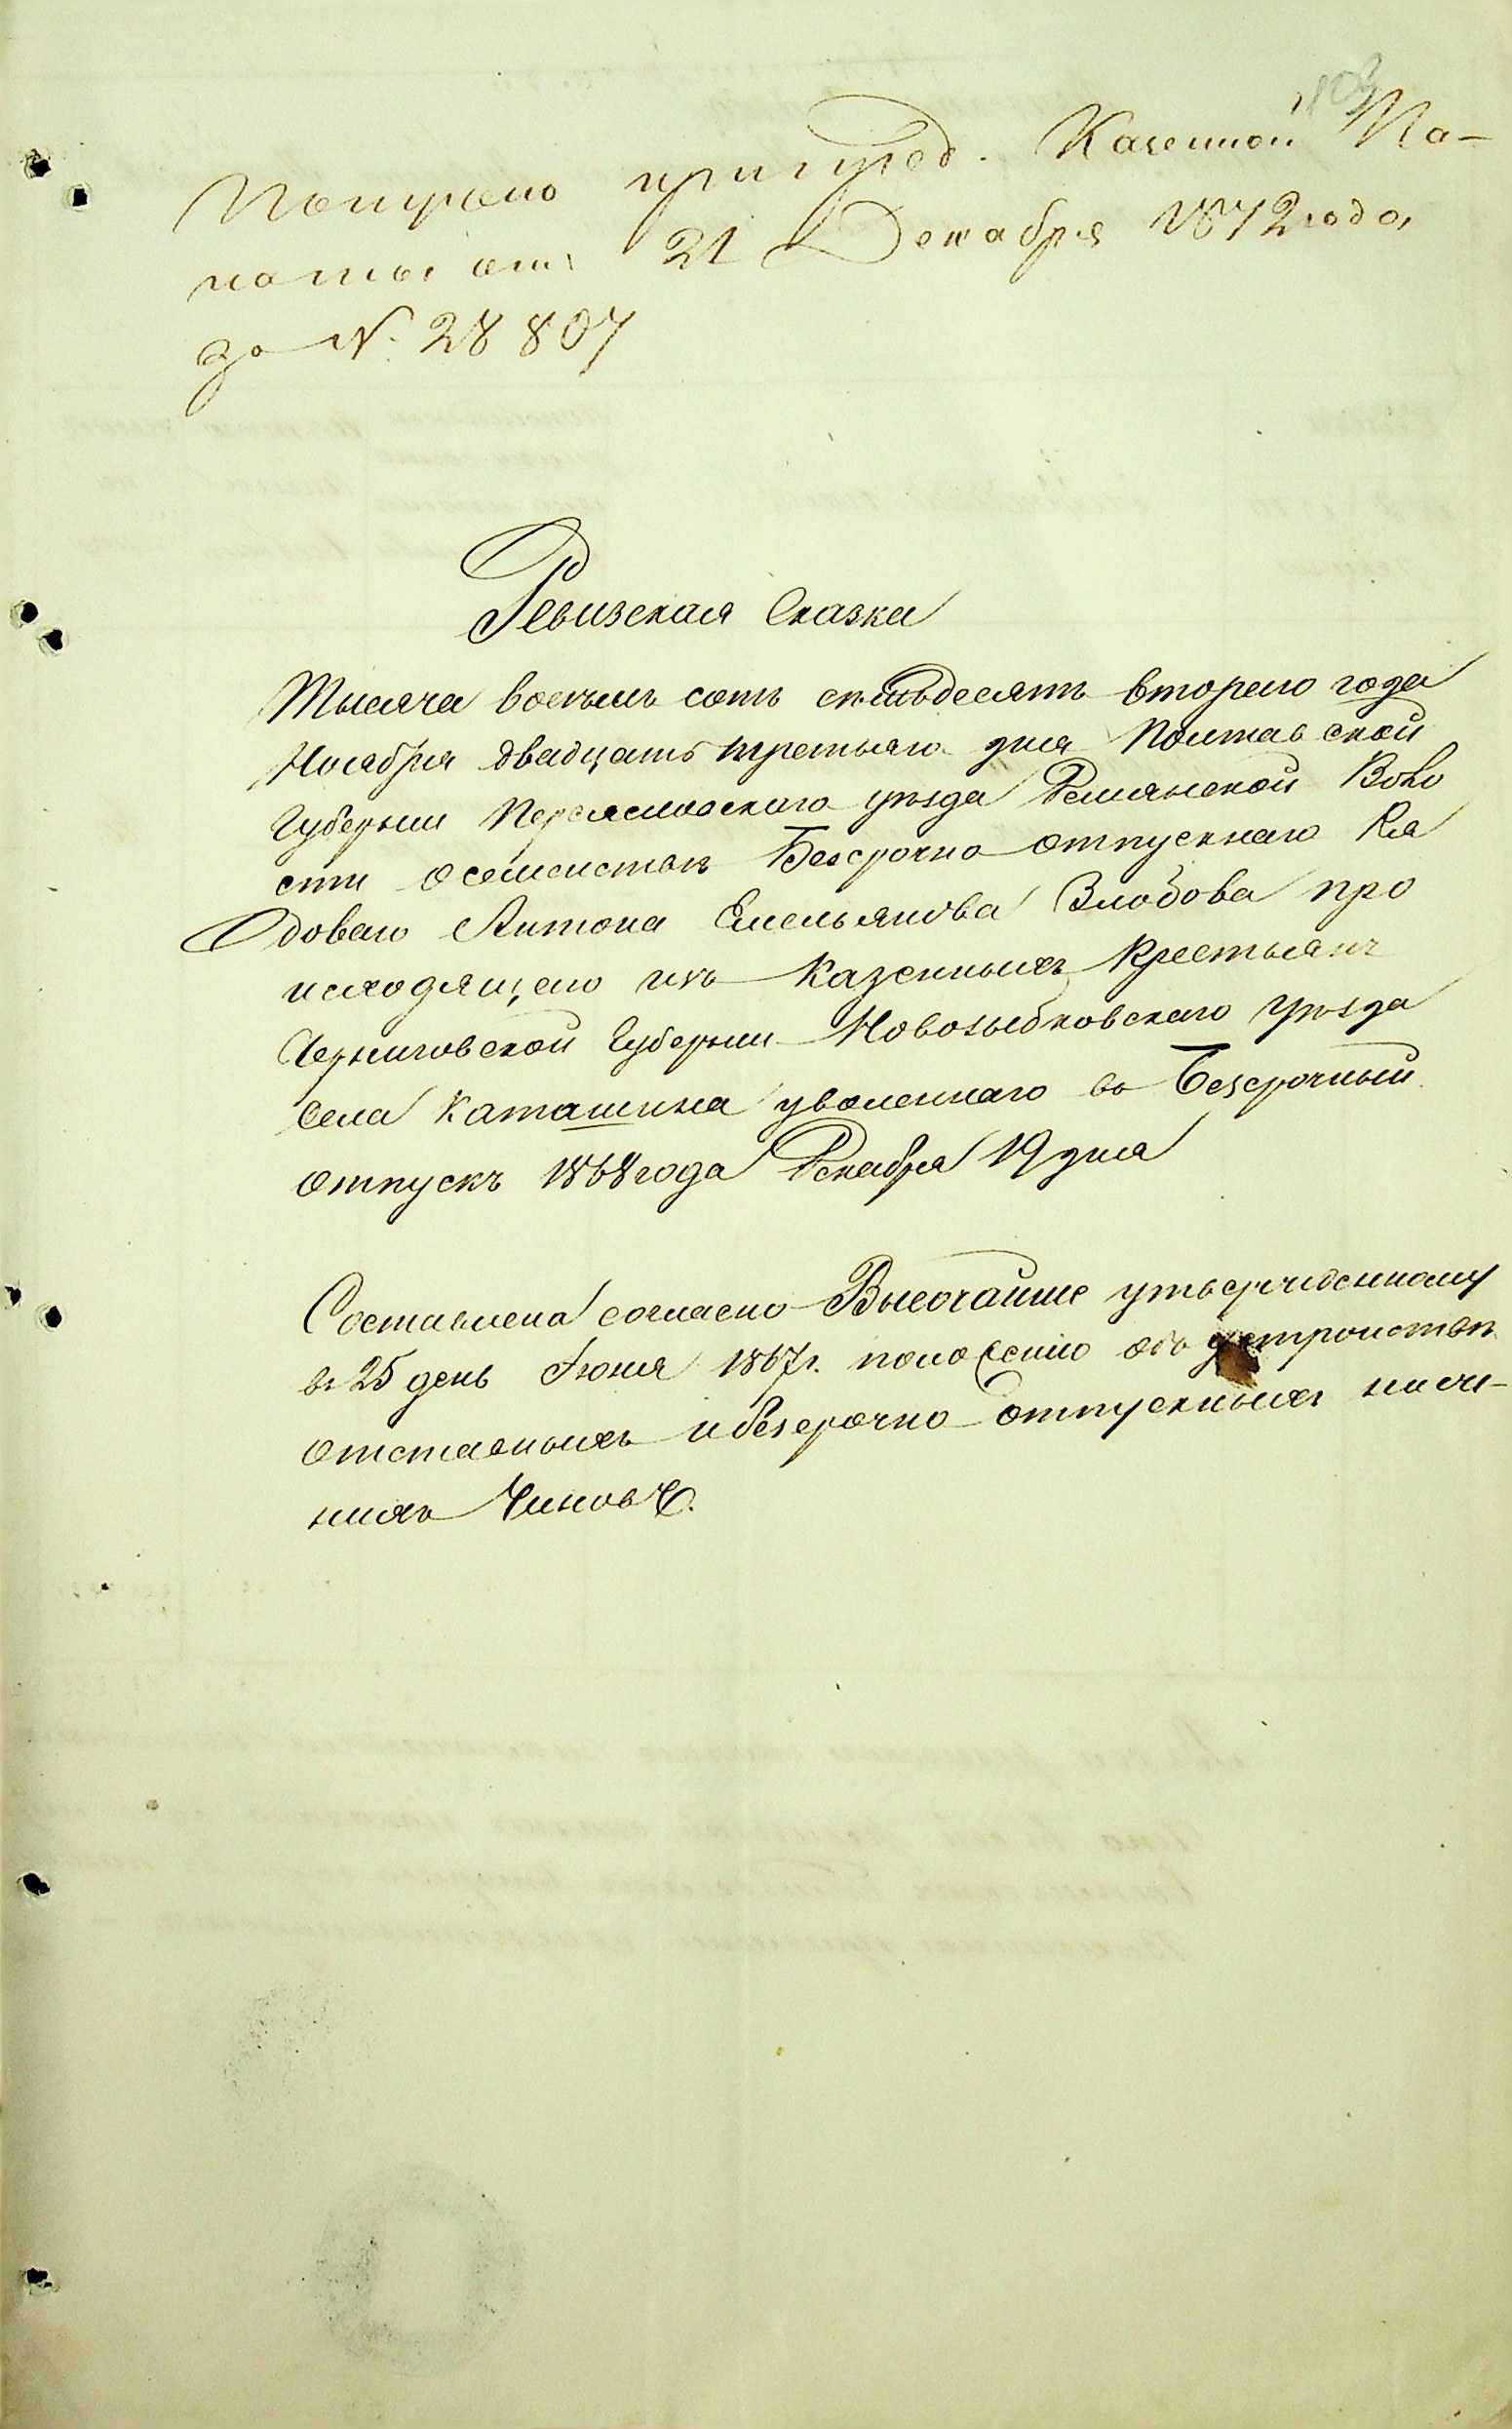 103
Получено при указ. Казенной Па-
латы отъ 21 Декабря 1872 года
за №. 28807
Ревизская Сказка
Тысяча восемь сотъ семьдесятъ второго года
Ноября двадцать третьяго дня Полтавской
Губерніи Переяславскаго уѣзда Демянской Воло
сти о семействѣ Безсрочно отпускнаго Ря
доваго Антона Емельянова Злобова про
исходящего изъ Казенныхъ Крестьянъ
Черниговской Губерніи Новозыбковскаго Уѣзда
Села Каташина уволеннаго въ Безсрочный
отпускъ 1868 года Декабря 19 дня
Составлена согласно Высочайше утвержденному
въ 25 день Іюня 1867 г. положенію объ устройствѣ
отставныхъ и безсрочно отпускныхъ нижн-
нихъ Чиновъ.